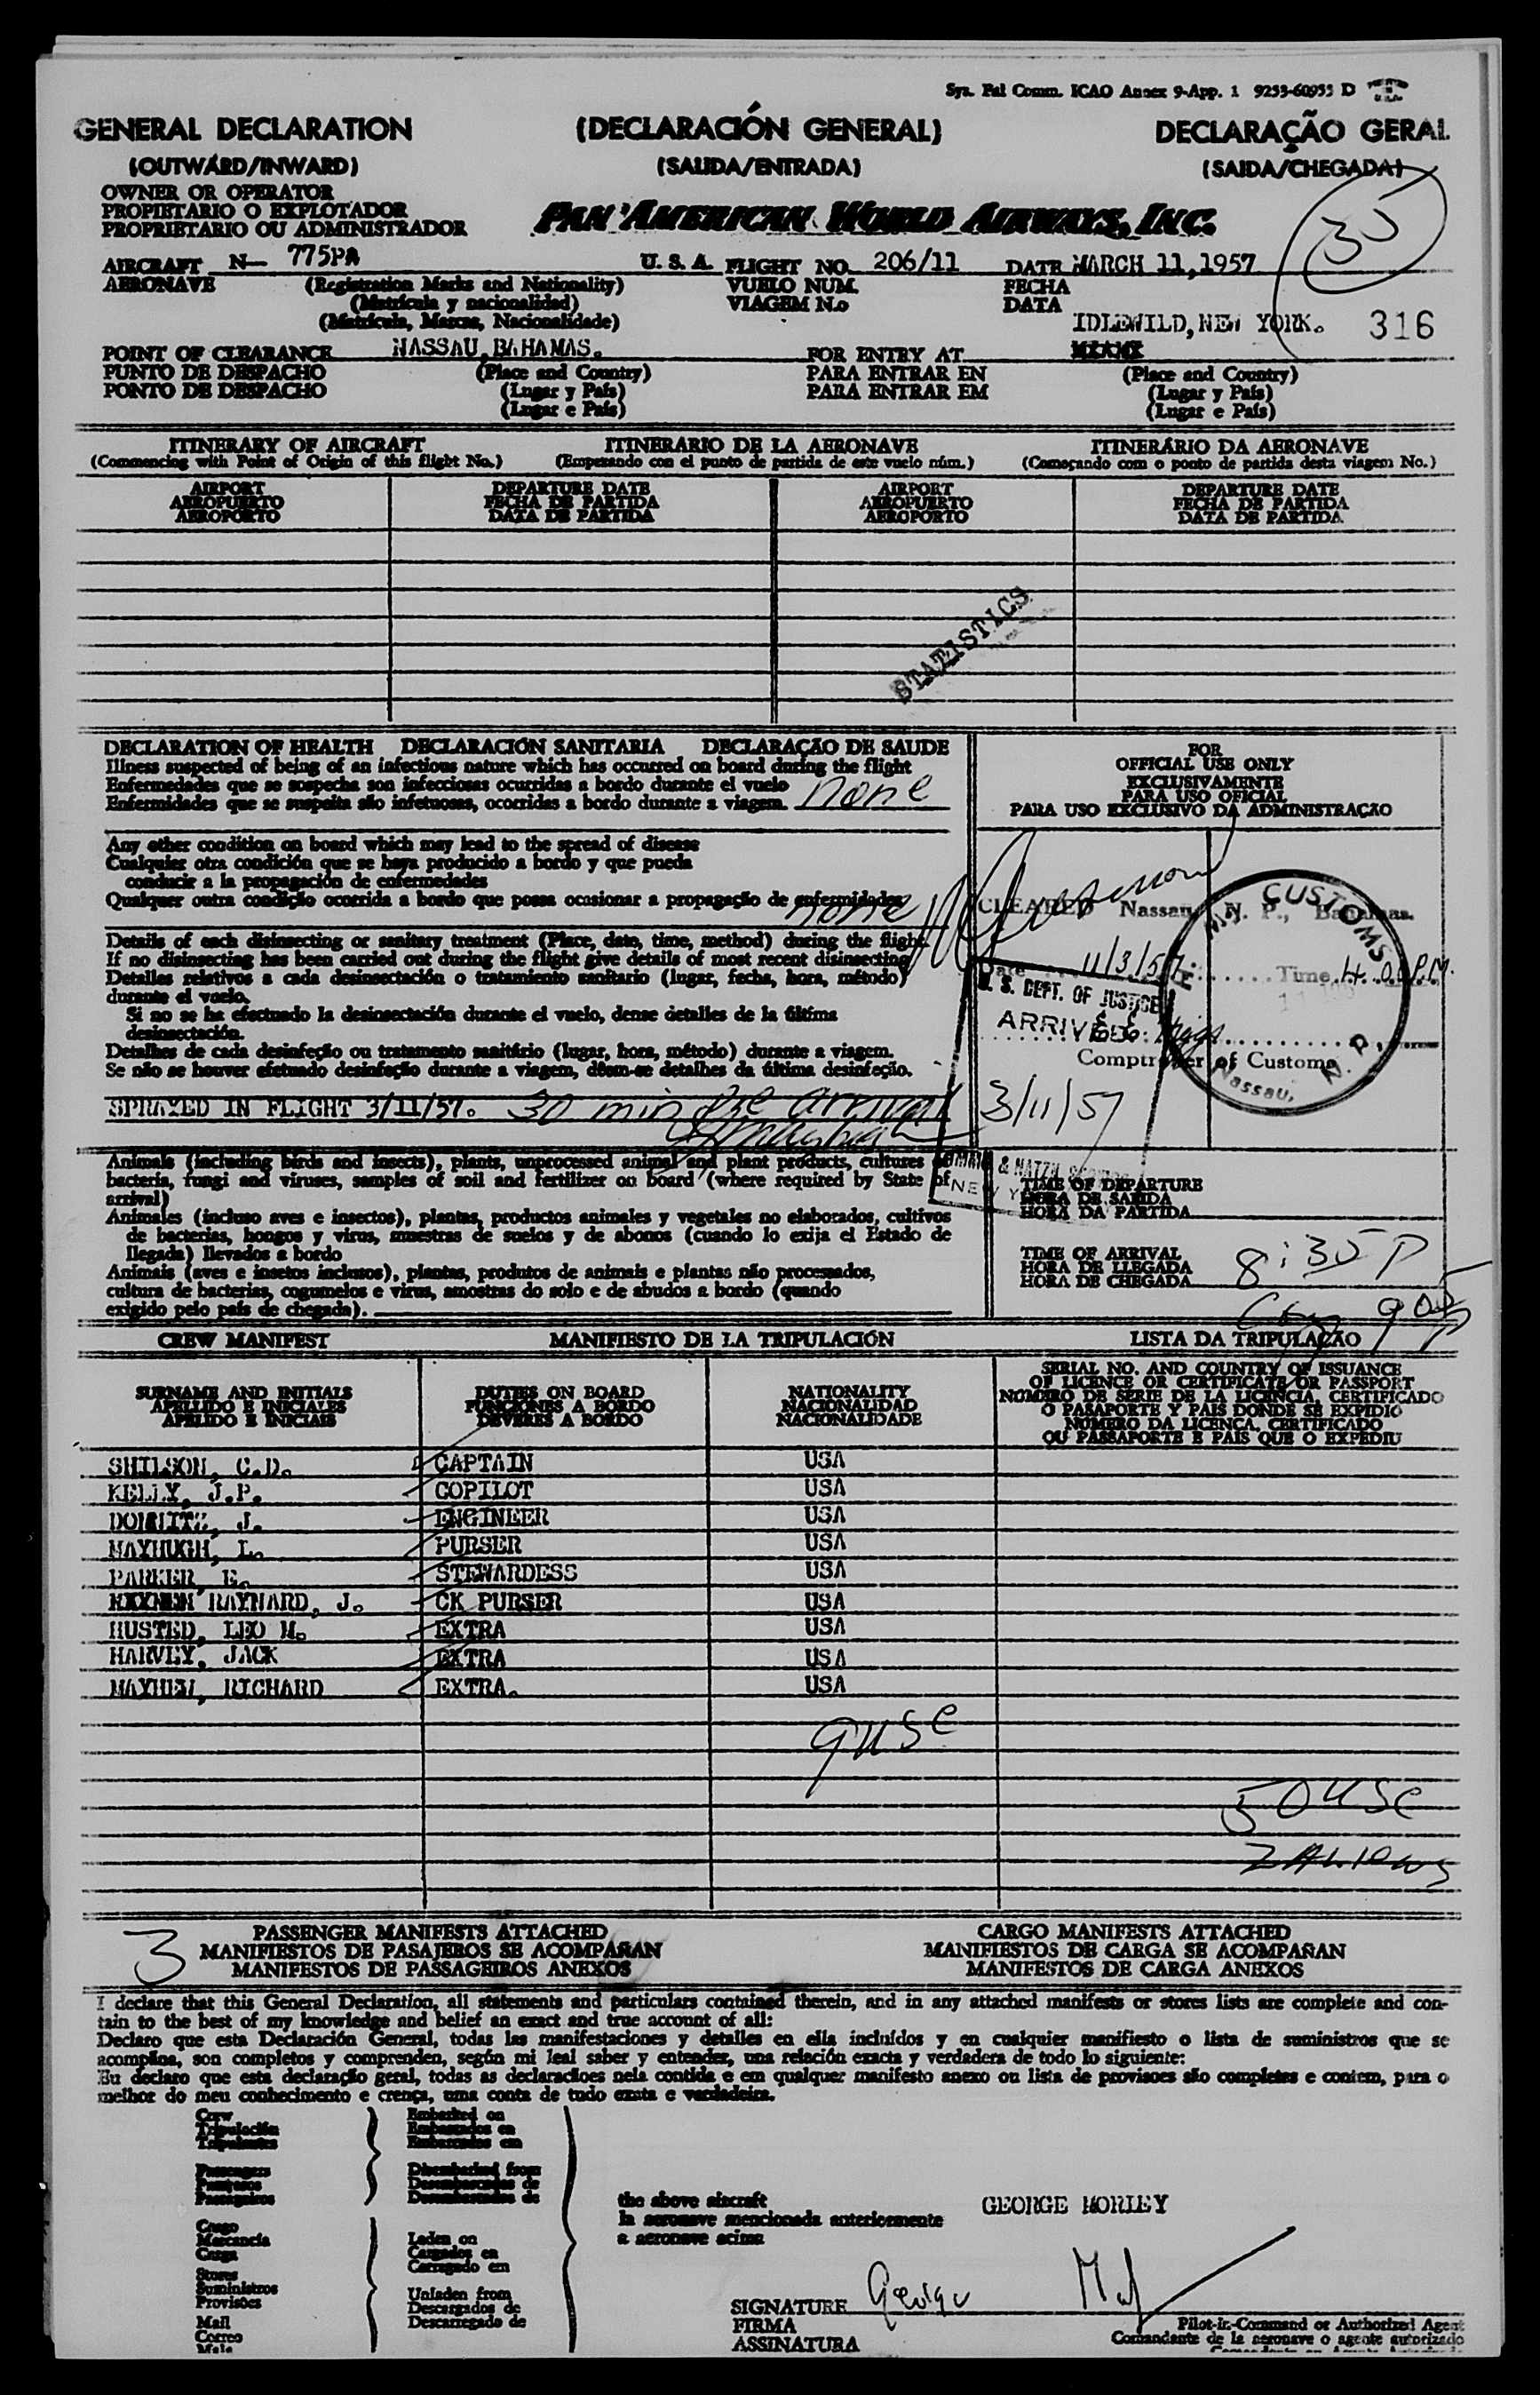 Sys. Pal Comm. ICAO Annex 9-App. 1 9253-60955 D
GENERAL DECLARATION (DECLARACIÓN GENERAL) DECLARAÇÃO GERAL
(OUTWARD/INWARD) (SALIDA/ENTRADA) (SAIDA/CHEGADA)
OWNER OR OPERATOR
PROPIETARIO O EXPLOTADOR
PROPRIETARIO OU ADMINISTRADOR
PAN AMERICAN WORLD AIRWAYS, INC.
35
AIRCRAFT N— 775PA U. S. A. FLIGHT NO. 206/11 DATE MARCH 11,1957
AERONAVE (Registration Marks and Nationality) VUELO NUM. FECHA
(Matrícula y nacionalidad) VIAGEM N.o DATA
(Matrícula, Marcas, Nacionalidade)
IDLEWILD, NEW YORK. 316
POINT OF CLEARANCE NASSAU, BAHAMAS. FOR ENTRY AT MIAMI
PUNTO DE DESPACHO (Place and Country) PARA ENTRAR EN (Place and Country)
PONTO DE DESPACHO (Lugar y País) PARA ENTRAR EM (Lugar y País)
(Lugar e País) (Lugar e País)
ITINERARY OF AIRCRAFT ITINERARIO DE LA AERONAVE ITINERÁRIO DA AERONAVE
(Commencing with Point of Origin of this flight No.) (Empezando con el punto de partida de este vuelo núm.) (Começando com o ponto de partida desta viagem No.)
AIRPORT DEPARTURE DATE AIRPORT DEPARTURE DATE
AEROPUERTO FECHA DE PARTIDA AEROPUERTO FECHA DE PARTIDA
AEROPORTO DATA DE PARTIDA AEROPORTO DATA DE PARTIDA
STATISTICS
DECLARATION OF HEALTH DECLARACIÓN SANITARIA DECLARAÇÃO DE SAUDE
Illness suspected of being of an infectious nature which has occurred on board during the flight
Enfermedades que se sospecha son infecciosas ocurridas a bordo durante el vuelo
Enfermidades que se suspeita são infetuosas, ocorridas a bordo durante a viagem. none
Any other condition on board which may lead to the spread of disease
Cualquier otra condición que se haya producido a bordo y que pueda
conducir a la propagación de enfermedades
Qualquer outra condição ocorrida a bordo que possa ocasionar a propagação de enfermidades none
Details of each disinsecting or sanitary treatment (Place, date, time, method) during the flight.
If no disinsecting has been carried out during the flight give details of most recent disinsecting
Detalles relativos a cada desinsectación o tratamiento sanitario (lugar, fecha, hora, método)
durante el vuelo.
Si no se ha efectuado la desinsectación durante el vuelo, dense detalles de la última
desinsectación.
Detalhes de cada desinfeção ou tratamento sanitário (lugar, hora, método) durante a viagem.
Se não se houver efetuado desinfeção durante a viagem, dêem-se detalhes da última desinfeção.
SPRAYED IN FLIGHT 3/11/57. 30 min pre arrival
Animals (including birds and insects), plants, unprocessed animal and plant products, cultures of
bacteria, fungi and viruses, samples of soil and fertilizer on board (where required by State of
arrival)
Animales (incluso aves e insectos), plantas, productos animales y vegetales no elaborados, cultivos
de bacterias, hongos y virus, muestras de suelos y de abonos (cuando lo exija el Estado de
llegada) llevados a bordo
Animais (aves e insetos inclusos), plantas, produtos de animais e plantas não processados,
cultura de bacterias, cogumelos e virus, amostras do solo e de abudos a bordo (quando
exigido pelo país de chegada).
FOR
OFFICIAL USE ONLY
EXCLUSIVAMENTE
PARA USO OFICIAL
PARA USO EXCLUSIVO DA ADMINISTRAÇÃO
CLEARED Nassau, N. P., Bahamas.
Date 11/3/57 Time 4.00 P.M.
Comptroller of Customs
H. M. CUSTOMS
Nassau, N. P.
U. S. DEPT. OF JUSTICE
ARRIVED
3/11/57
IMMIG & NATZN SERVICE
NEW Y
TIME OF DEPARTURE
HORA DE SALIDA
HORA DA PARTIDA
TIME OF ARRIVAL
HORA DE LLEGADA
HORA DE CHEGADA 8:35 P
905 P
CREW MANIFEST MANIFIESTO DE LA TRIPULACIÓN LISTA DA TRIPULAÇÃO
SURNAME AND INITIALS DUTIES ON BOARD NATIONALITY SERIAL NO. AND COUNTRY OF ISSUANCE
APELLIDO E INICIALES FUNCIONES A BORDO NACIONALIDAD OF LICENCE OR CERTIFICATE OR PASSPORT
APELIDO E INICIAIS DEVERES A BORDO NACIONALIDADE NÚMERO DE SERIE DE LA LICENCIA, CERTIFICADO
O PASAPORTE Y PAIS DONDE SE EXPIDIO
NÚMERO DA LICENCA, CERTIFICADO
OU PASSAPORTE E PAIS QUE O EXPEDIU
SHILSON, C.D. CAPTAIN USA
KELLY, J.P. COPILOT USA
DORNITZ, J. ENGINEER USA
MAYHUGH, L. PURSER USA
PARKER, E. STEWARDESS USA
RAYNARD, J. CK PURSER USA
HUSTED, LEO M. EXTRA USA
HARVEY, JACK EXTRA USA
MAYHEW, RICHARD EXTRA. USA
9 USC
50 USC
2 Aliens
3
PASSENGER MANIFESTS ATTACHED CARGO MANIFESTS ATTACHED
MANIFIESTOS DE PASAJEROS SE ACOMPAÑAN MANIFIESTOS DE CARGA SE ACOMPAÑAN
MANIFESTOS DE PASSAGEIROS ANEXOS MANIFESTOS DE CARGA ANEXOS
I declare that this General Declaration, all statements and particulars contained therein, and in any attached manifests or stores lists are complete and con-
tain to the best of my knowledge and belief an exact and true account of all:
Declaro que esta Declaración General, todas las manifestaciones y detalles en ella incluídos y en cualquier manifiesto o lista de suministros que se
acomplña, son completos y comprenden, según mi leal saber y entender, una relación exacta y verdadera de todo lo siguiente:
Eu declaro que esta declaração geral, todas as declaracãoes nela contida e em qualquer manifesto anexo ou lista de provisoes são completas e contem, para o
melhor do meu conhecimento e crença, uma conta de tudo exata e verdadeira.
Crew Embarked on
Tripulación Embarcados en
Tripulantes Embarcados em
Passengers Disembarked from
Pasajeros Desembarcados de
Passageiros Desembarcados de
the above aircraft
la aeronave mencionada anteriormente
a aeronave acima
GEORGE MORLEY
Cargo
Mercancía Laden on
Carga Cargados en
Carregado em
Stores
Suministros Unladen from
Provisões Descargados de
Mail Descarregado de
Correo
Mala
SIGNATURE
FIRMA
ASSINATURA
George
Pilot-in-Command or Authorized Agent
Comandante de la aeronave o agente autorizado